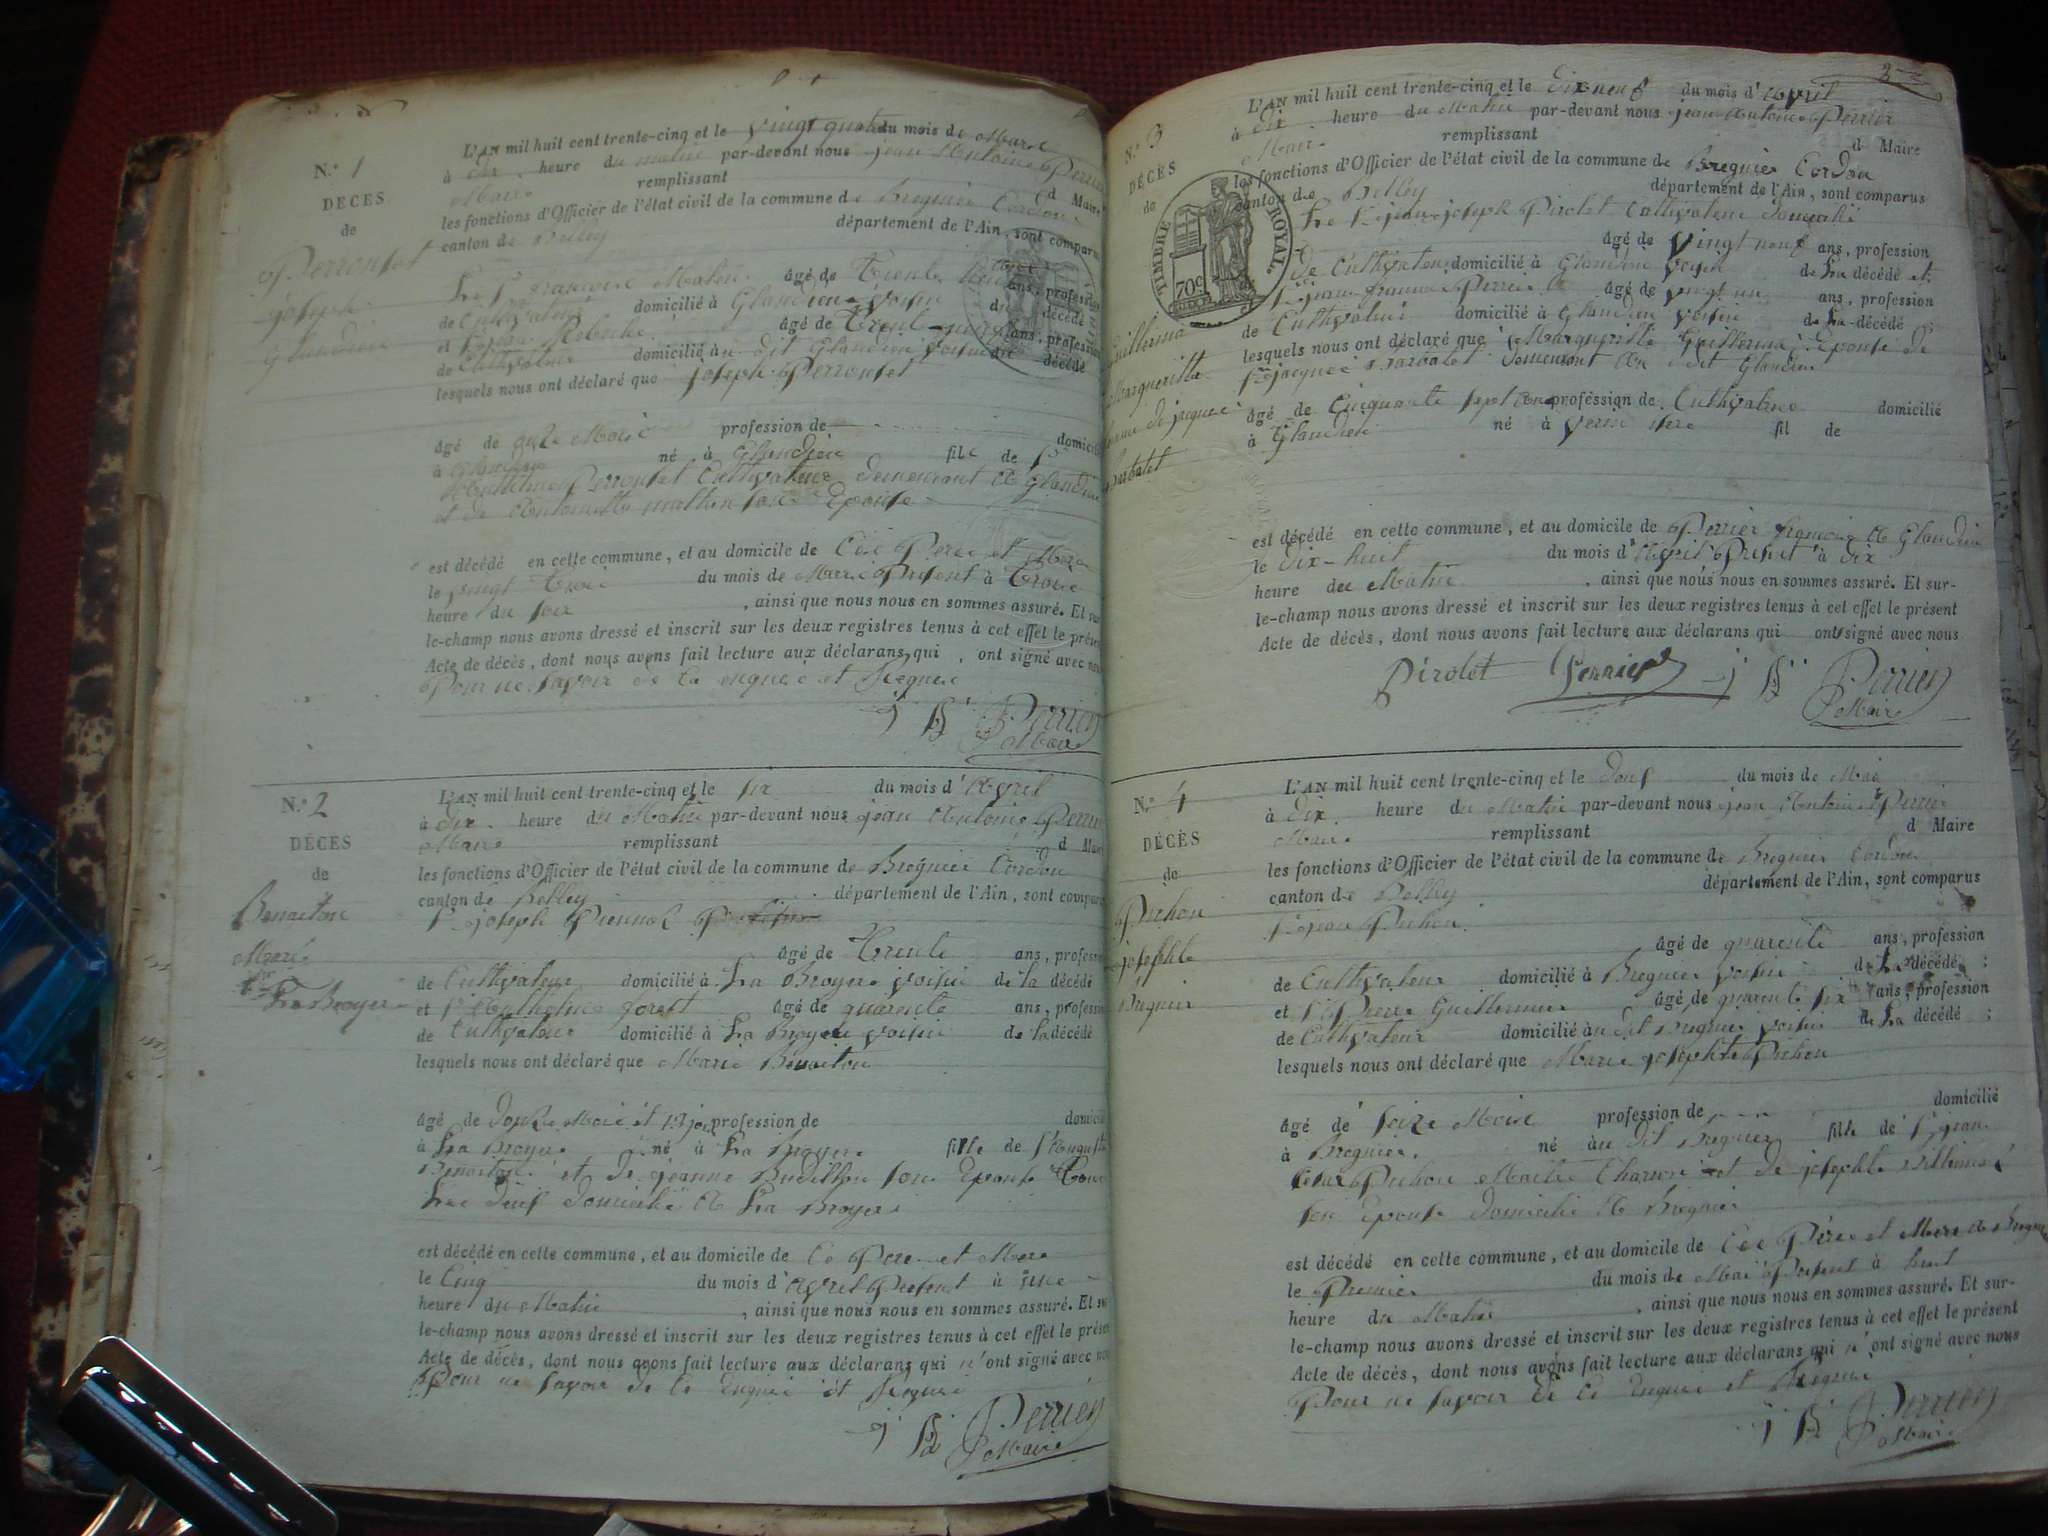 N.º 1
DÉCÈS
de
Perronset
joseph
Glandieu
L'AN mil huit cent trente-cinq et le vingt quatre du mois de Mars
à dix heure du matin par-devant nous jean Antoine Perrier
Maire remplissant d Maire
les fonctions d'Officier de l'état civil de la commune de Bregnier Cordon
canton de Belley département de l'Ain, sont comparus
âgé de Trente ans, profession
de Cultivateur domicilié à Glandieu voisin du décédé
et âgé de Trente ans, profession
de Cultivateur domicilié au dit Glandieu voisin du décédé
lesquels nous ont déclaré que joseph Perronset
âgé de onze Mois profession de domicilié
à Glandieu né à Glandieu fils de
Anthelme Perronset Cultivateur demeurant A Glandieu
et de Antoinette son Epouse
est décédé en cette commune, et au domicile de Ces Pere et Mere
le vingt Trois du mois de Mars Present à Trois
heure du soir , ainsi que nous nous en sommes assuré. Et sur-
le-champ nous avons dressé et inscrit sur les deux registres tenus à cet effet le présent
Acte de décès, dont nous avons fait lecture aux déclarans qui , ont signé avec nous
Pour ne savoir de ce enquis et Requis
Perrier
Maire
N.º 2
DÉCÈS
de
Benaiton
Marie
La Broyere
L'AN mil huit cent trente-cinq et le six du mois d'Avril
à dix heure du Matin par-devant nous jean Antoine Perrier
Maire remplissant d Maire
les fonctions d'Officier de l'état civil de la commune de Bregnier Cordon
canton de Belley département de l'Ain, sont comparus
joseph
âgé de Trente ans, profession
de Cultivateur domicilié à La Broyere voisin de la décédé
et Anthelme foret âgé de quarente ans, profession
de Cultivateur domicilié à La Broyere voisin de la décédé
lesquels nous ont déclaré que Marie Benaiton
âgé de Mois et profession de domicilié
à La Broyere né à La Broyere fille de
Benaiton et de jeanne son Epouse Tous
Les deux domicilié A La Broyere
est décédé en cette commune, et au domicile de Ce Pere et Mere
le Cinq du mois d'avril Present à une
heure du Matin , ainsi que nous nous en sommes assuré. Et sur-
le-champ nous avons dressé et inscrit sur les deux registres tenus à cet effet le présent
Acte de décès, dont nous avons fait lecture aux déclarans qui n'ont signé avec nous
Pour ne savoir de Ce Enquis et Requis
Perrier
Maire
N.º 3
DÉCÈS
de
Guillermin
Margueritte
femme de jacques
TIMBRE ROYAL
70c
L'AN mil huit cent trente-cinq et le dix neuf du mois d'avril
à dix heure du Matin par-devant nous jean Antoine Perrier
Maire remplissant d Maire
les fonctions d'Officier de l'état civil de la commune de Bregnier Cordon
canton de Belley département de l'Ain, sont comparus
Le Sr jean joseph Pirolet Cultivateur domicilié
âgé de vingt neuf ans, profession
de Cultivateur domicilié à Glandieu voisin de La décédé et
jean Perrier âgé de vingt un ans, profession
de Cultivateur domicilié à Glandieu voisin de La décédé
lesquels nous ont déclaré que Margueritte Guillermin Epouse de
jacques demeurant Au dit Glandieu
âgé de Cinquante sept ans profession de Cultivatrice domicilié
à Glandieu né à fil de
est décédé en cette commune, et au domicile de Perrier francois A Glandieu
le dix-huit du mois d'Avril Present à dix
heure du Matin , ainsi que nous nous en sommes assuré. Et sur-
le-champ nous avons dressé et inscrit sur les deux registres tenus à cet effet le présent
Acte de décès, dont nous avons fait lecture aux déclarans qui ont signé avec nous
Pirolet Perrier Perrier
Maire
N.º 4
DÉCÈS
de
Pichon
josephte
Bregnier
L'AN mil huit cent trente-cinq et le deux du mois de Mai
à Dix heure du Matin par-devant nous jean Antoine Perrier
Maire remplissant d Maire
les fonctions d'Officier de l'état civil de la commune de Bregnier Cordon
canton de Belley département de l'Ain, sont comparus
jean Pichon
âgé de quarente ans, profession
de Cultivateur domicilié à Bregnier voisin de La décédé ;
et Pierre Guillermin âgé de quarente six ans, profession
de Cultivateur domicilié au dit Bregnier voisin de La décédé ;
lesquels nous ont déclaré que Marie josephte Pichon
âgé de seize Mois profession de domicilié
à Bregnier né au dit Bregnier fille de jean
Pichon Maitre Charron et de josephte
son Epouse domicilié A Bregnier
est décédé en cette commune, et au domicile de Ces Père et Mere de Bregnier
le Premier du mois de Mai Present à huit
heure du Matin , ainsi que nous nous en sommes assuré. Et sur-
le-champ nous avons dressé et inscrit sur les deux registres tenus à cet effet le présent
Acte de décès, dont nous avons fait lecture aux déclarans qui n'ont signé avec nous
Pour ne savoir de Ce Enquis et Requis
Perrier
Maire